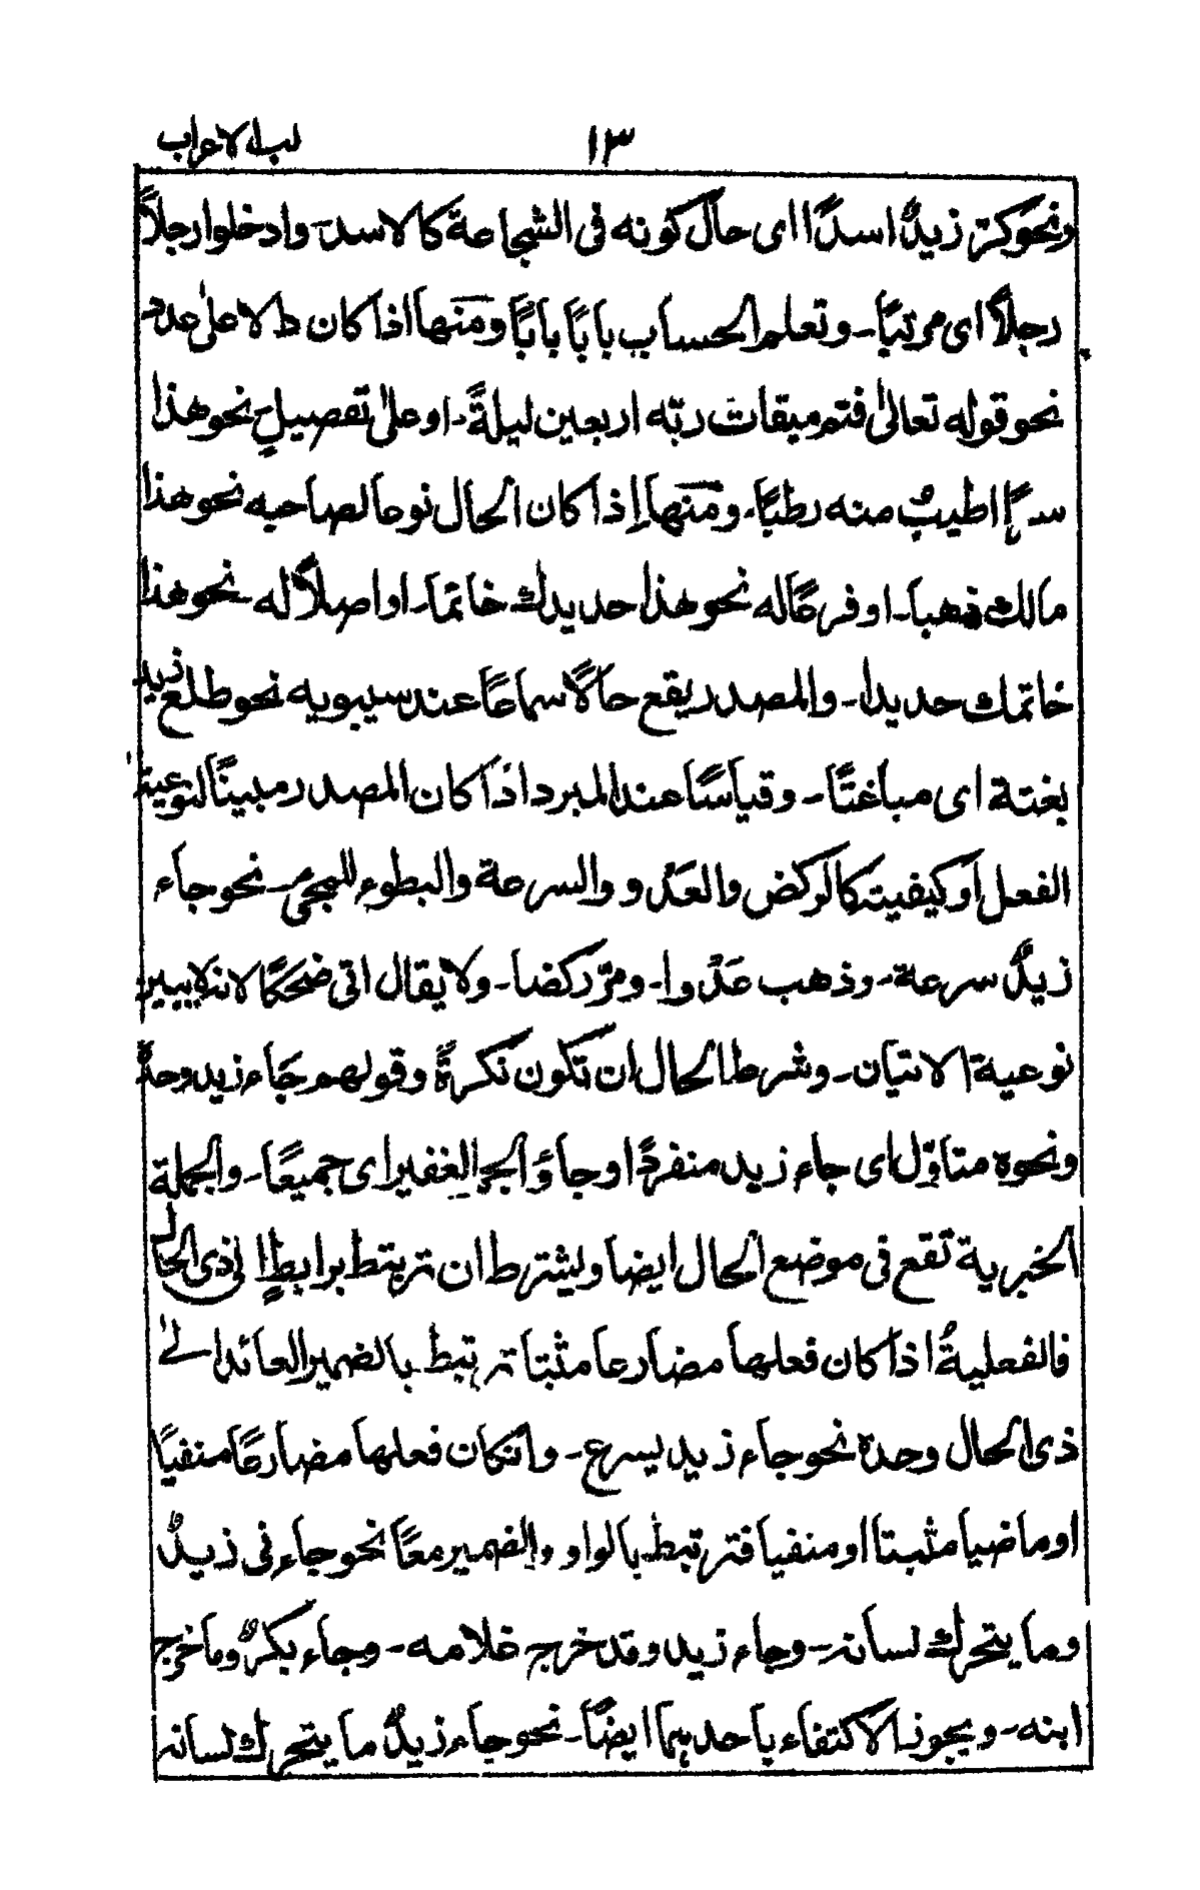 لب الاعراب
١٣
ونحو كرّ زيدٌ اسدًا اى حال كونه فى الشجاعة كالاسد۔ وادخلوا رجلاً
رجلاً اى مرتبًا۔ وتعلم الحساب بابًا بابًا ومنها اذا كان دالا على عدد
نحو قوله تعالىٰ فتم ميقات ربّه اربعين ليلةً۔ او على تفصيلٍ نحو هذا
بسرًا اطيبُ منه رطبًا۔ ومنها اذا كان الحال نوعا لصاحبه نحو هذا
مالك ذهبا۔ او فرعًا له نحو هذا حديدك خاتمًا۔ او اصلاً له۔ نحو هذا
خاتمك حديدا۔ والمصدر يقع حالًا سماعًا عند سيبويه نحو طلع زيد
بغتة اى مباغتًا۔ وقياسًا عند المبرد اذا كان المصدر مبينًا لنوعية
الفعل او كيفيته كالركض والعَدْو والسرعة والبطوء للمجئ۔ نحو جاء
زيدٌ سرعة۔ وذهب عَدْوا۔ ومرّ ركضا۔ ولا يقال اتى ضحكًا لانه لا يبين
نوعية الاتيان۔ وشرط الحال ان تكون نكرةً وقولهم جاء زيد وحدهٗ
ونحوه متاوّل اى جاء زيد منفردًا وجاؤ الجم الغفير اى جميعًا۔ والجملة
الخبرية تقع فى موضع الحال ايضا ويشترط ان تربتط برابطٍ الى ذى الحال
فالفعليةُ اذا كان فعلها مضارعا مثبتا ترتبط بالضمير العائد الى
ذى الحال وحده نحو جاء زيد يسرع۔ وانكان فعلها مضارعًا منفيًا
او ماضيا مثبتا او منفيا فترتبط بالواو والضمير معًا نحو جاء نى زيدٌ
وما يتحرك لسانه۔ وجاء زيد وقد خرج غلامه۔ وجاء بكرٌ وما خرج
ابنه۔ ويجوز الاكتفاء باحدهما ايضًا۔ نحو جاء زيدٌ ما يتحرك لسانه